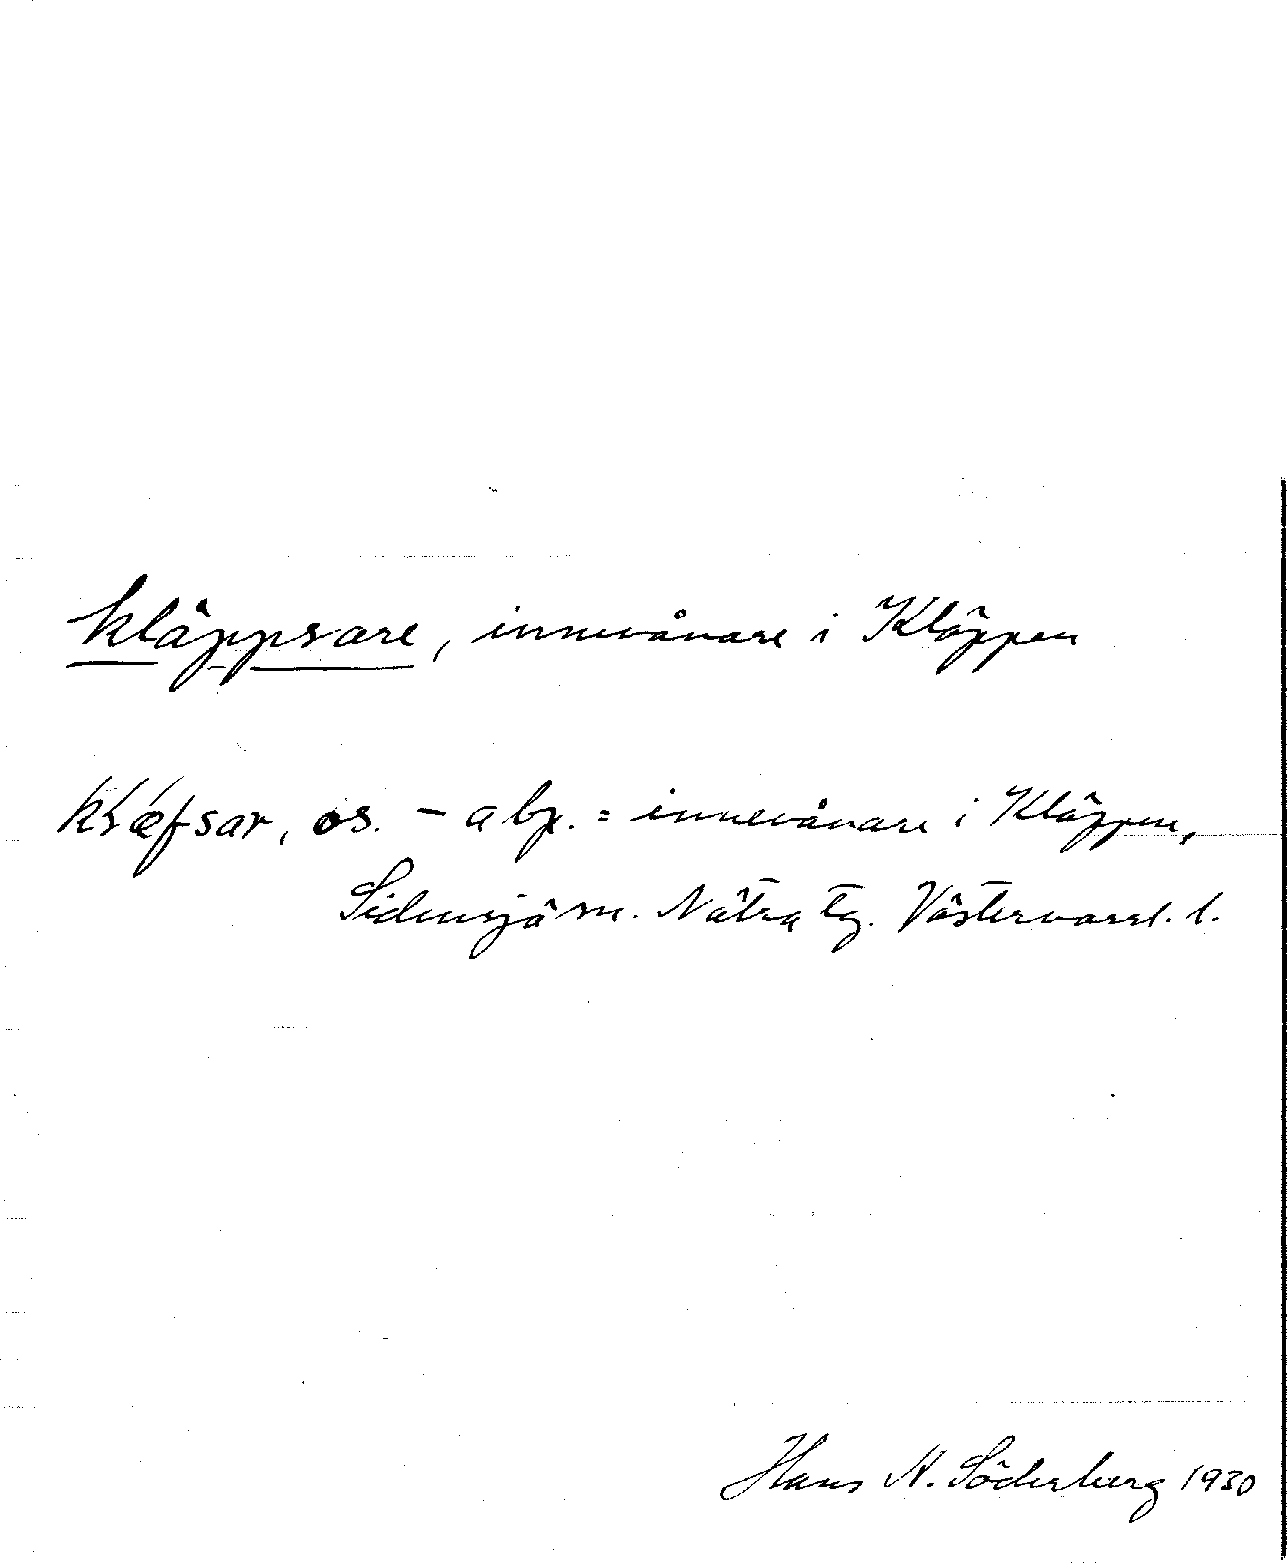 kläppsare, innevånare i Kläppen
klæfsar, os. – abp. = innevånare i Kläppen,
Sidensjö sn. Nätra tg. Västernorrl. l.
Hans N. Söderberg 1930